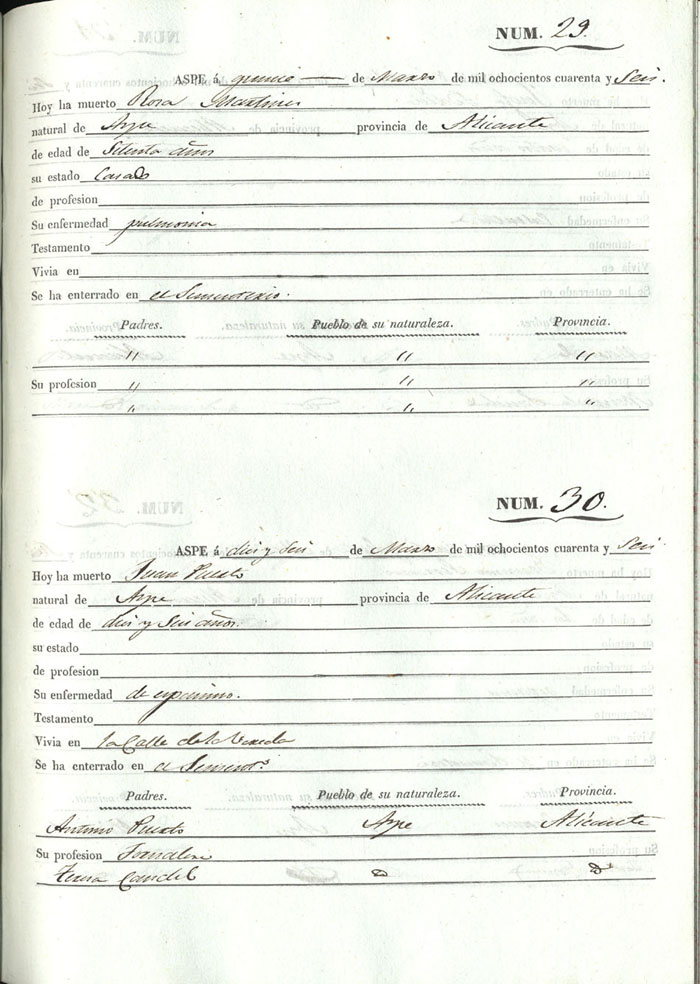 NUM. 29.
ASPE á quince de Marzo de mil ochocientos cuarenta y Seis.
Hoy ha muerto Rosa Martines
natural de Aspe provincia de Alicante
de edad de Setenta años
su estado Casado
de profesion
Su enfermedad pulmonia
Testamento
Vivia en
Se ha enterrado en el Sementerio.
Padres. Pueblo de su naturaleza. Provincia.
" " "
Su profesion " " "
" " "
NUM. 30.
ASPE á diez y Seis de Marzo de mil ochocientos cuarenta y Seis
Hoy ha muerto Juan
natural de Aspe provincia de Alicante
de edad de diez y Seis años.
su estado
de profesion
Su enfermedad de
Testamento
Vivia en la Calle de la Vereda
Se ha enterrado en el Sementº
Padres. Pueblo de su naturaleza. Provincia.
Antonio Aspe Alicante
Su profesion Jornalero
Teresa Candel